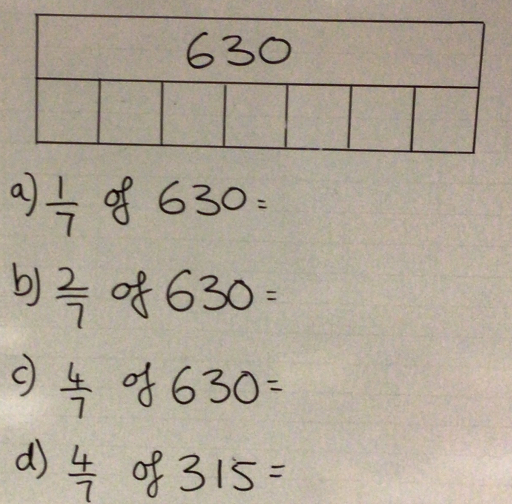 630
a) 1/7 of 630=
b) 2/7 of 630=
c) 4/7 of 630=
d) 4/7 of 315=